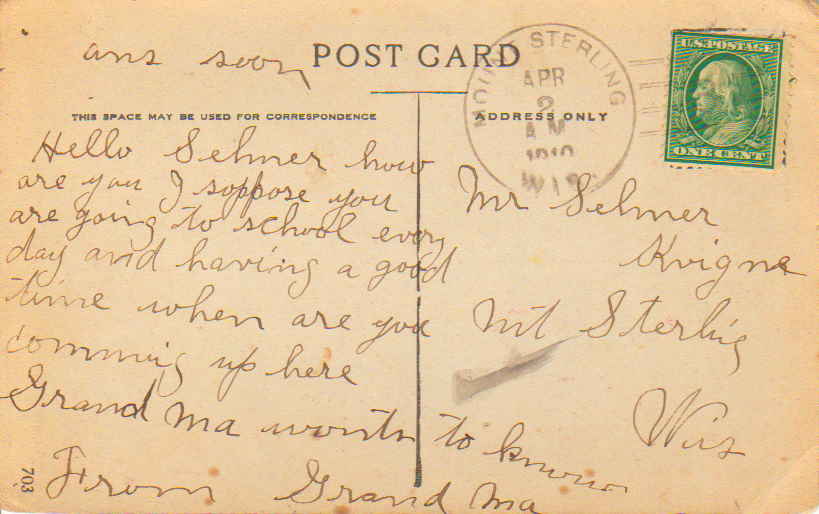 ans soon
POST CARD
THIS SPACE MAY BE USED FOR CORRESPONDENCE
Hello Selmer how
are you I soppose you
are going to school every
day and having a good
time when are you
comming up here
Grand Ma wants to know
From Grand Ma
703
MOUNT STERLING
APR
2
AM
1910
WIS.
U.S. POSTAGE
ONE CENT
ADDRESS ONLY
Mr Selmer
Kvigne
Mt Sterling
Wis